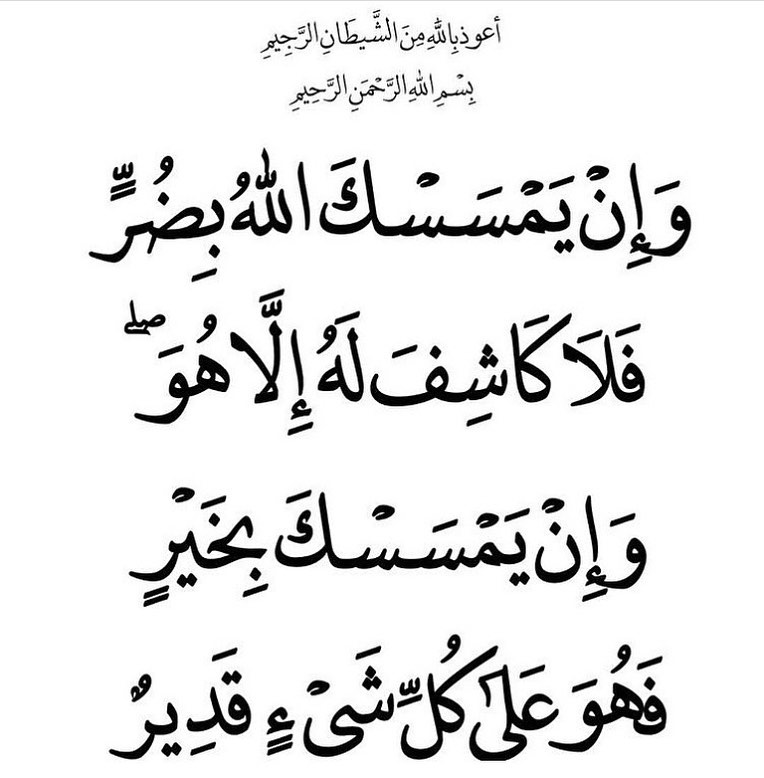 أعوذ بِاللهِ مِنَ الشَّيطَانِ الرَّجِيمِ
بِسْمِ اللهِ الرَّحْمَنِ الرَّحِيمِ
وَإِنْ يَمْسَسْكَ اللهُ بِضُرٍّ
فَلَا كَاشِفَ لَهُ إِلَّا هُوَ ۖ
وَإِنْ يَمْسَسْكَ بِخَيْرٍ
فَهُوَ عَلَىٰ كُلِّ شَيْءٍ قَدِيرٌ